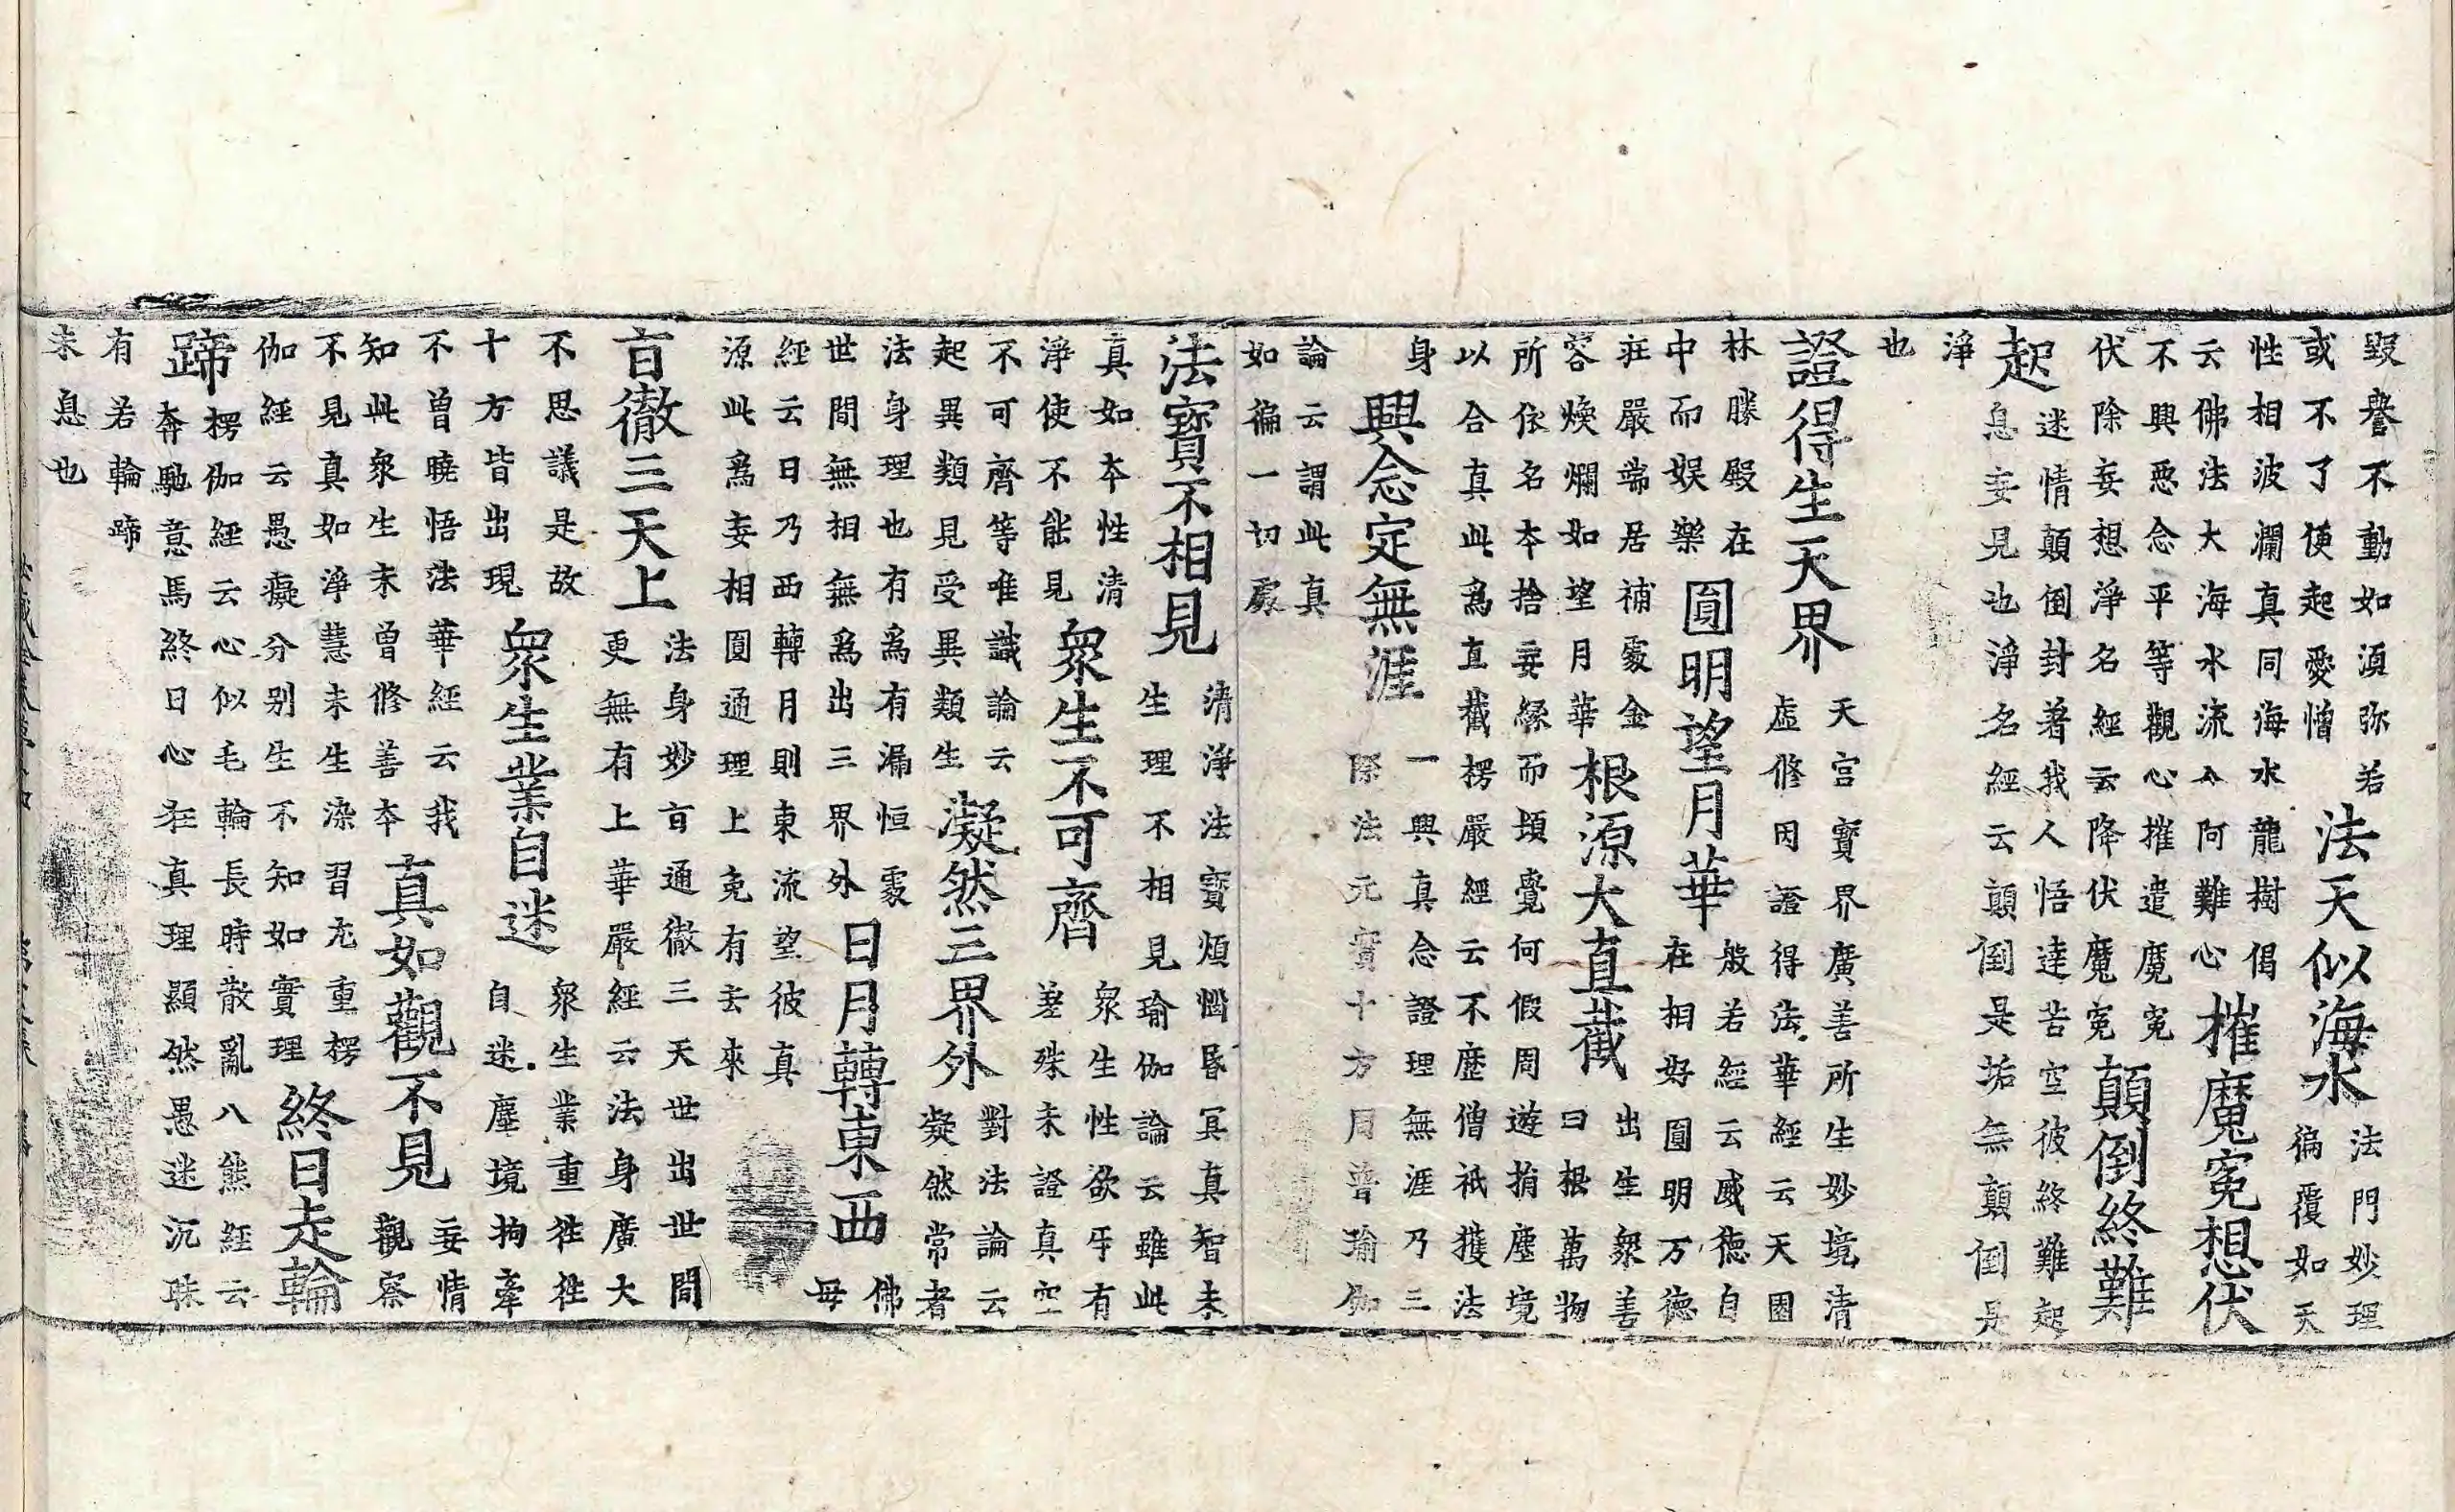 毀譽不動如湏弥若
或不了使起愛憎
法天似海水
法門妙理
徧覆如天
性相波瀾真同海水龍樹偈
云佛法大海水流入阿難心
摧魔寃想伏
不興悪念平等觀心摧遣魔寃
伏除妄想淨名經云降伏魔寃
顛倒終難
起
迷情顛倒封著我人悟達苦空彼終難起
息妄見也淨名經云顛倒是垢無顛倒是
淨
也
證得生天界
天宮寳界廣善所生妙境清
虛修因證得法華經云天園
林勝殿在
中而娱樂
圓明望月華
般若經云威德自
在相好圓明万德
莊嚴端居補處金
容煥爛如望月華
根源大直截
出生衆善
曰根萬物
所依名本捨妄緣而頓覺何假周遊捐塵境
以合真此爲直截楞嚴經云不歷僧祇獲法
身
興念定無涯
一興真念證理無涯乃三
際法元實十方周普瑜伽
論云謂此真
如徧一切處
法寳不相見
清淨法寳煩惱昏冥真智未
生理不相見瑜伽論云雖此
真如本性清
淨使不能見
衆生不可齊
衆生性欲牙有
差殊未證真空
不可齊等唯識論云
起異類見受異類生
凝然三界外
對法論云
凝然常者
法身理也有爲有漏恒處
世間無相無爲出三界外
日月轉東西
佛
毋
經云日乃西轉月則東流望彼真
源此爲妄相圓通理上免有去來
言徹三天上
法身妙言通徹三天世出世間
更無有上華嚴經云法身廣大
不思議是故
十方皆出現
衆生業自迷
衆生業重徃徃
自迷塵境拘牽
不曾曉悟法華經云我
知此衆生未曾修善本
真如觀不見
妄情
觀察
不見真如淨慧未生染習尤重楞
伽經云愚癡分别生不知如實理
終日走輪
蹄
楞伽經云心似毛輪長時散亂八熊經云
奔馳意馬終日心狂真理顯然愚迷沉昧
有若輪蹄
未息也